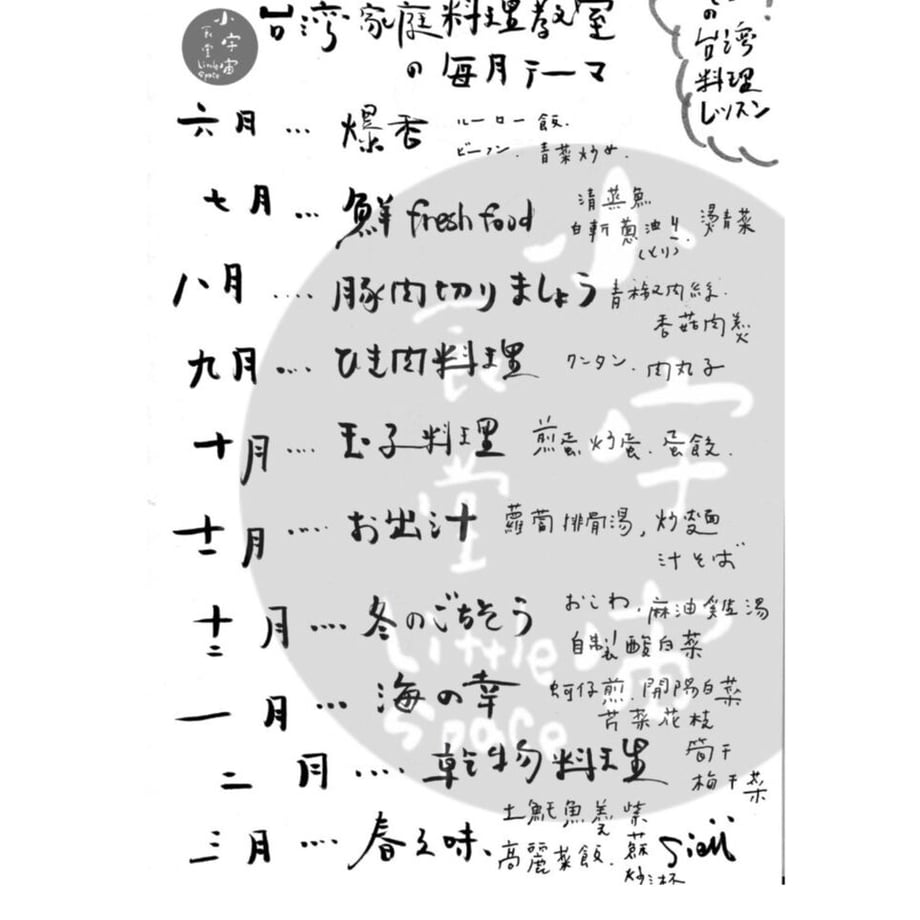 小宇宙
食堂
Little
Space
台湾家庭料理教室
の毎月テーマ
の台湾
料理
レッスン
六月 … 爆香 ルーロー飯.
ビーフン. 青菜炒め.
七月 … 鮮 fresh food 清蒸魚
白斬蔥油リ. 燙青菜
(とり)
八月 …. 豚肉切りましょう 青椒肉絲.
香菇肉羹
九月 …. ひき肉料理 ワンタン. 肉丸子
十月 …. 玉子料理 煎蛋. 炒蛋. 蛋餃.
十一月 …. お出汁 蘿蔔排骨湯, 炒麵
汁そば
十二月 …. 冬のごちそう おこわ. 麻油雞湯
自製酸白菜
一月 … 海の幸 蚵仔煎. 開陽白菜
芹菜花枝
二月 …. 乾物料理 筍干
梅干菜
三月 …. 春之味、 土魠魚羹
高麗菜飯.
小宇宙
食堂
Little
Space